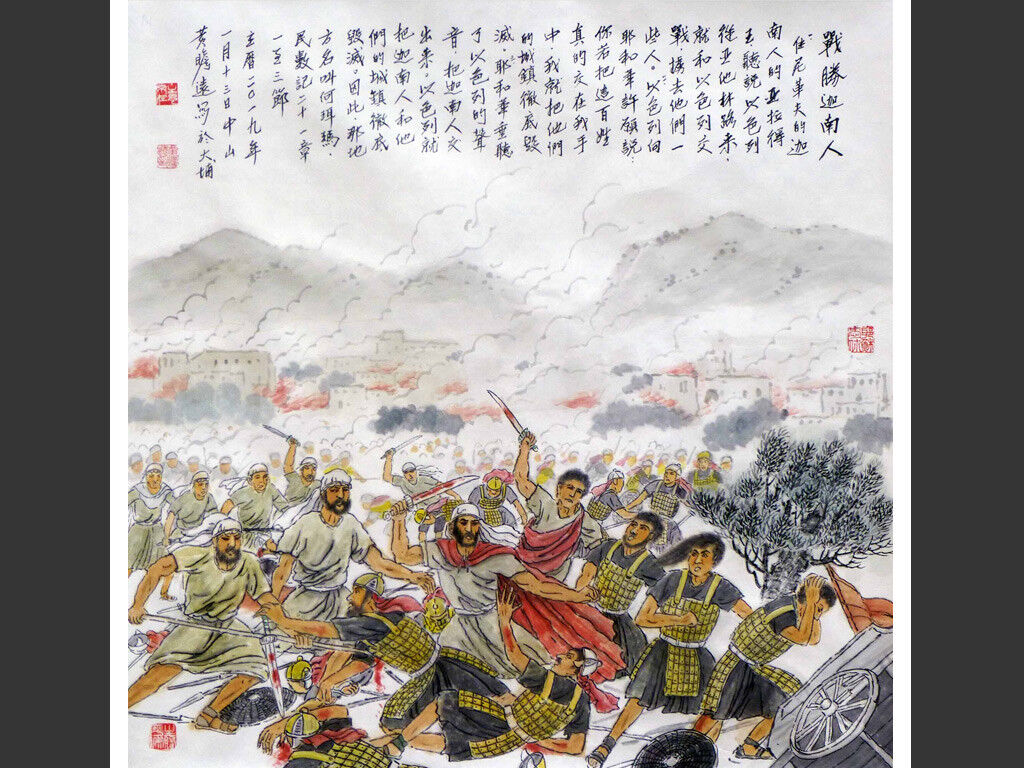 戰勝迦南人
住尼革夫的迦
南人的亚拉得
王，聽說以色列
從亚他林路来，
就和以色列交
戰，擄去他們一
些人。以色列向
耶和華許願說：
你若把這百姓
真的交在我手
中，我就把他們
的城鎮徹底毀
滅。耶和華垂聽
了以色列的聲
音，把迦南人交
出来。以色列就
把迦南人和他
們的城鎮徹底
毀滅。因此，那地
方名叫何珥瑪。
民數記二十一章
一至三節
主曆二〇一九年
一月十三日中山
黄瞻遠寫於大埔